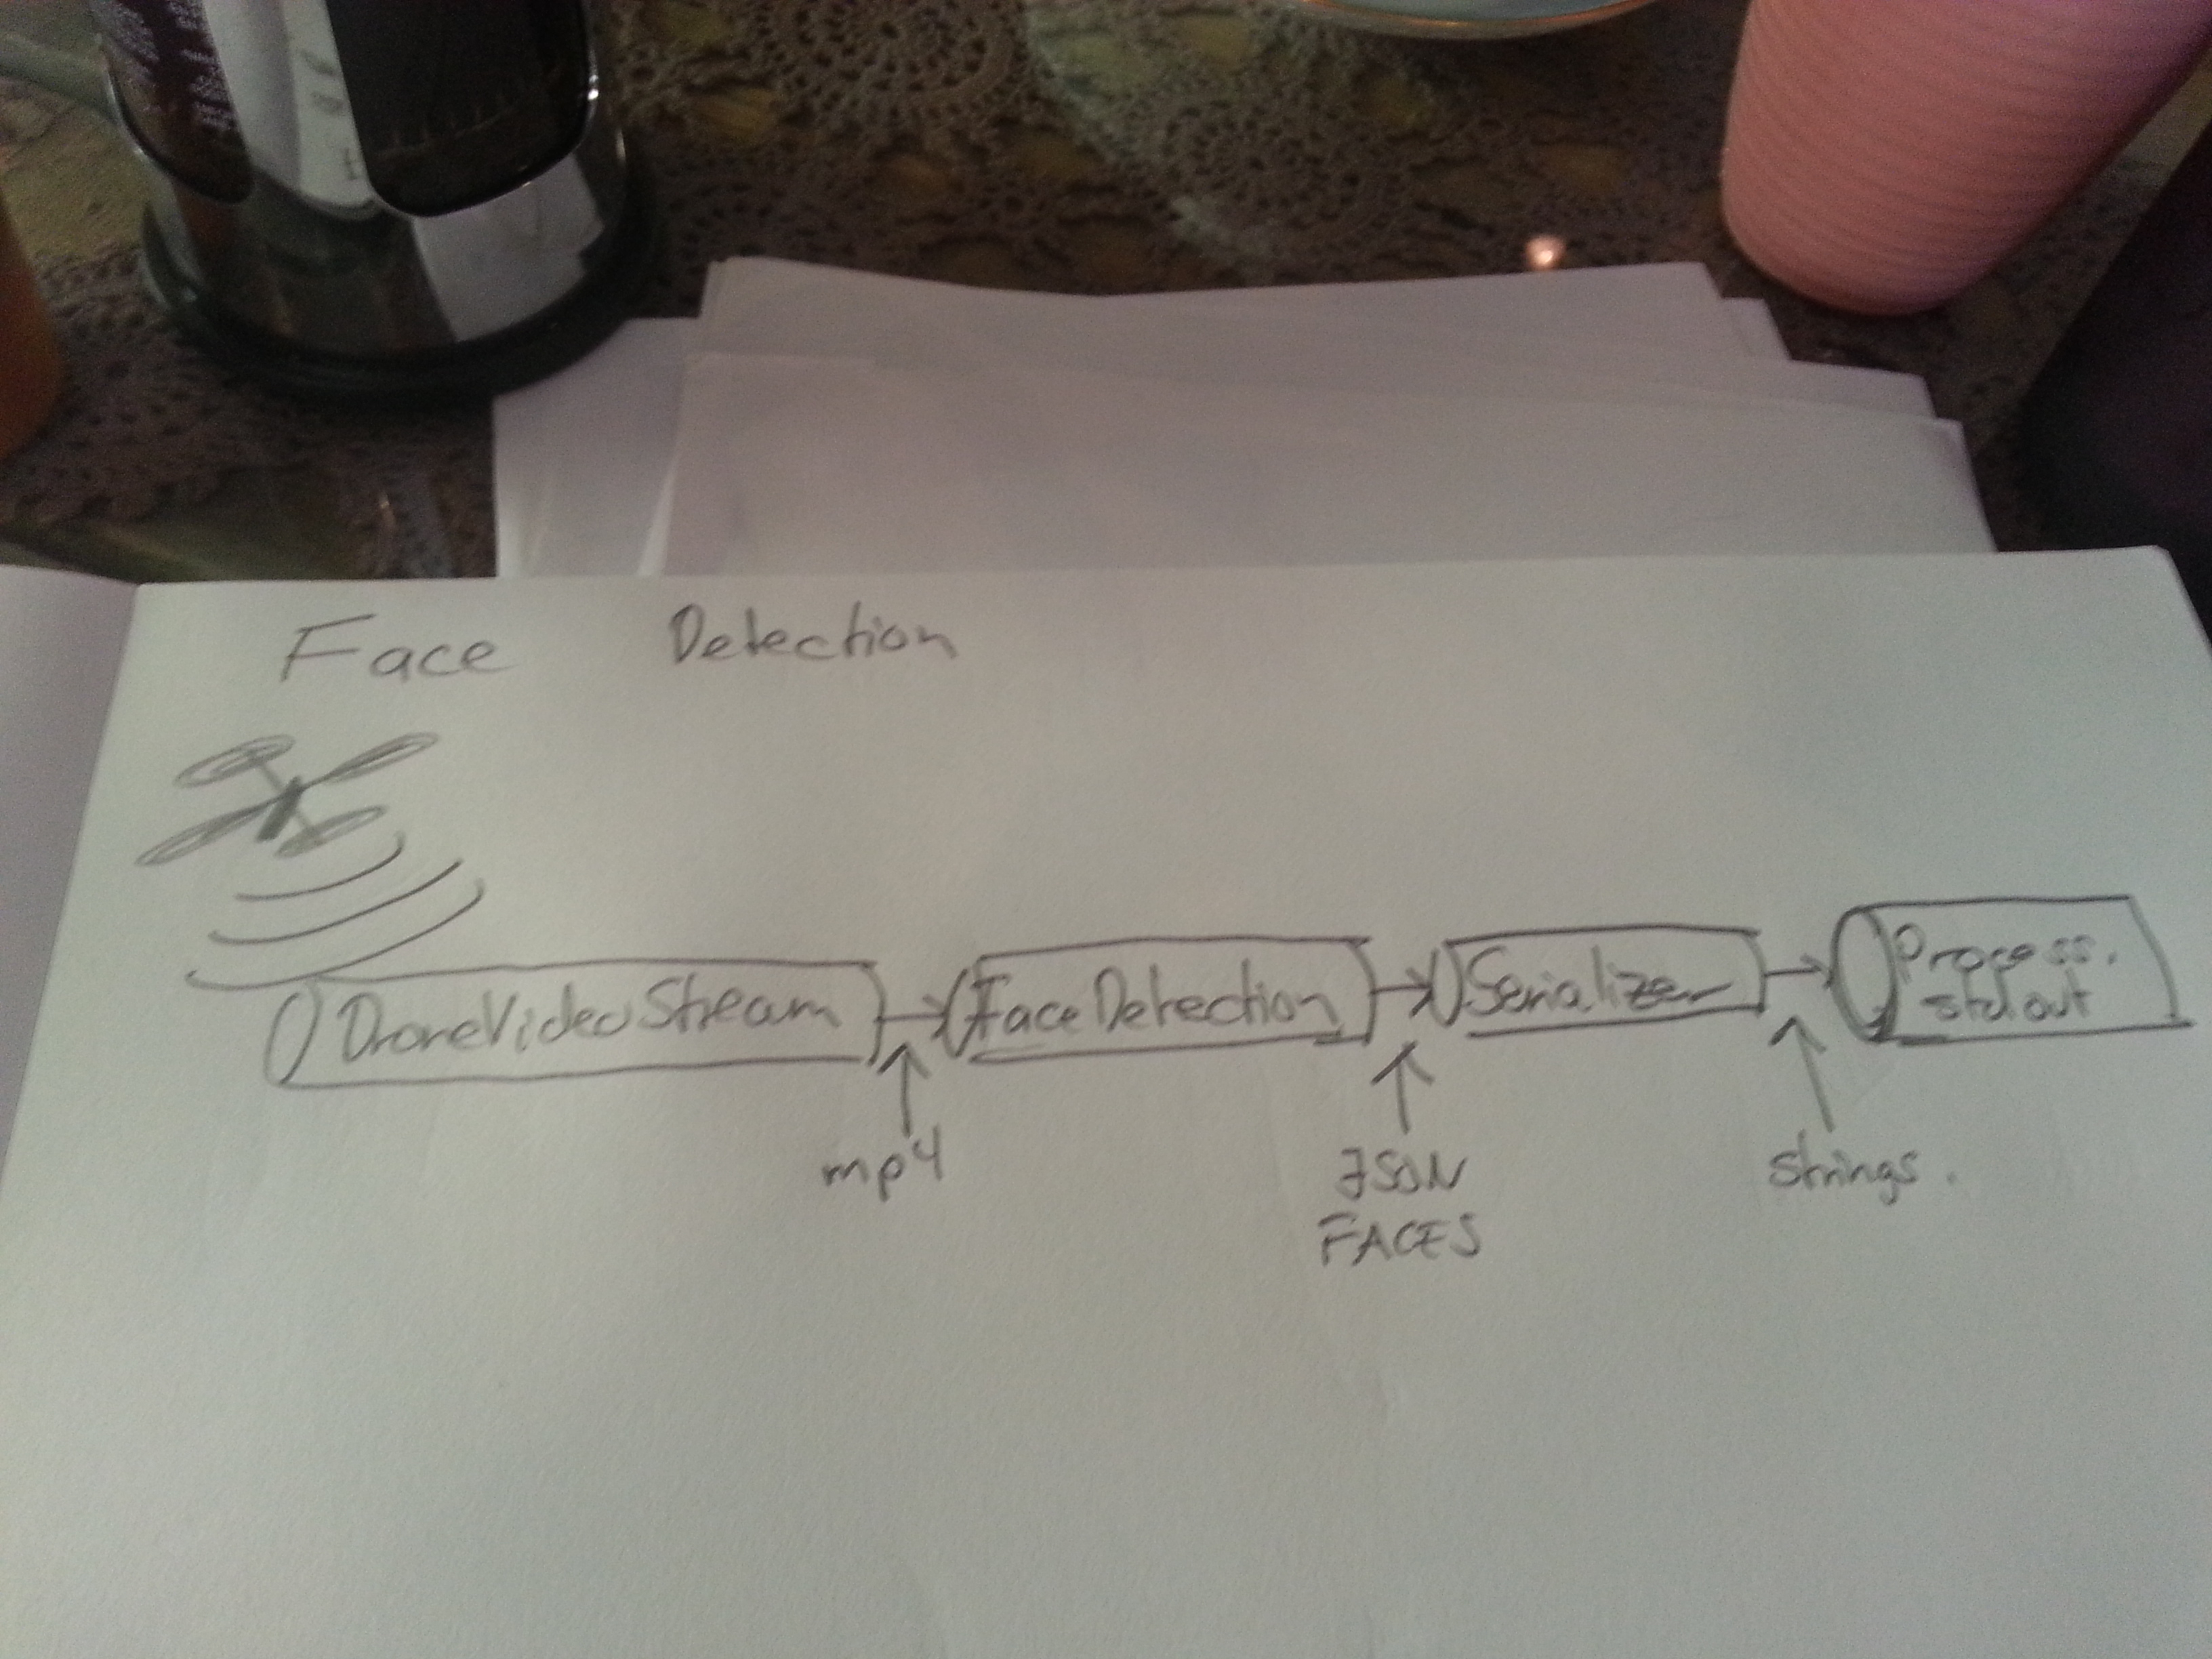 Face Detection
DroneVideoStream
FaceDetection
Serializer
Process.
stdout
mp4
JSON
FACES
strings.